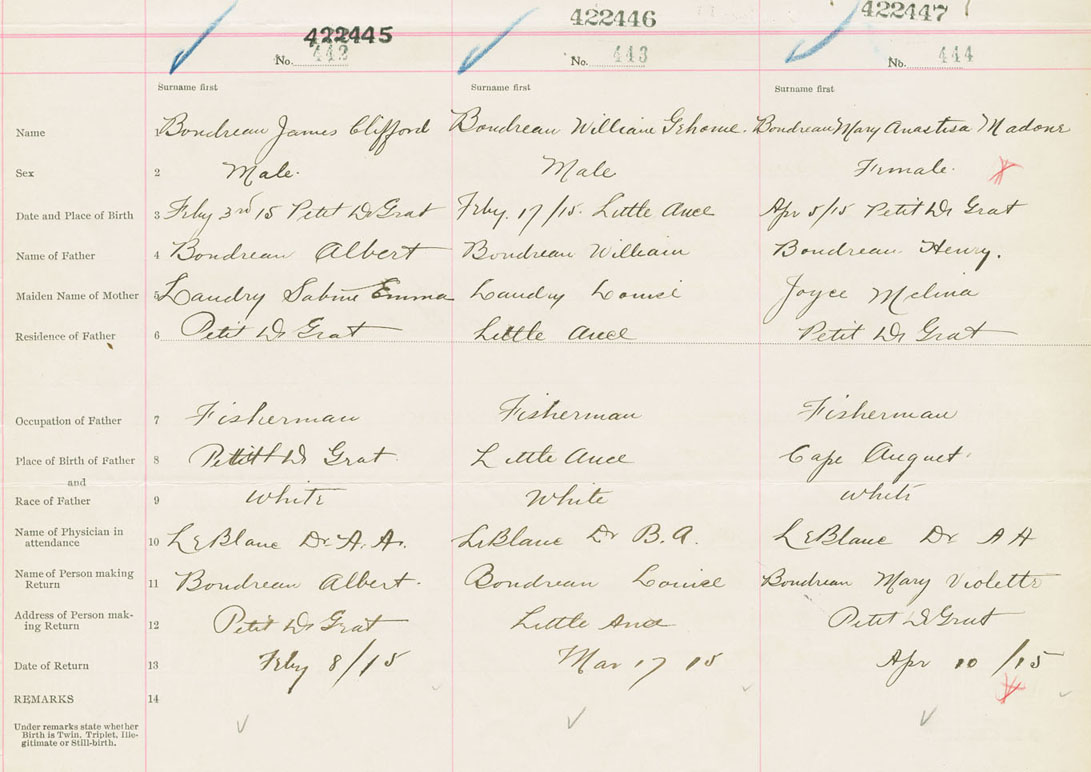 422445 422446 422447
No. 442 No. 443 No. 444
Surname first Surname first Surname first
Name 1 Boudreau James Clifford Boudreau William Boudreau Mary Anastisa Madone
Sex 2 Male. Male Female.
Date and Place of Birth 3 Feby 3rd 15 Petit De Grat Feby. 17/15. Little Ance Apr 5/15 Petit De Grat
Name of Father 4 Boudreau Albert Boudreau William Boudreau Henry.
Maiden Name of Mother 5 Landry Sabine Emma Landry Louise Joyce Melina
Residence of Father 6 Petit De Grat Little Ance Petit De Grat
Occupation of Father 7 Fisherman Fisherman Fisherman
Place of Birth of Father 8 Petit De Grat Little Ance Cape Auguet.
and
Race of Father 9 White White White
Name of Physician in
attendance 10 LeBlanc Dr A. A. LeBlanc Dr B. A. LeBlanc Dr A H
Name of Person making
Return 11 Boudreau Albert. Boudreau Louise Boudreau Mary Violette
Address of Person mak-
ing Return 12 Petit De Grat Little Ance Petit De Grat
Date of Return 13 Feby 8/15 Mar 17 15 Apr 10/15
REMARKS 14
Under remarks state whether
Birth is Twin, Triplet, Ille-
gitimate or Still-birth.